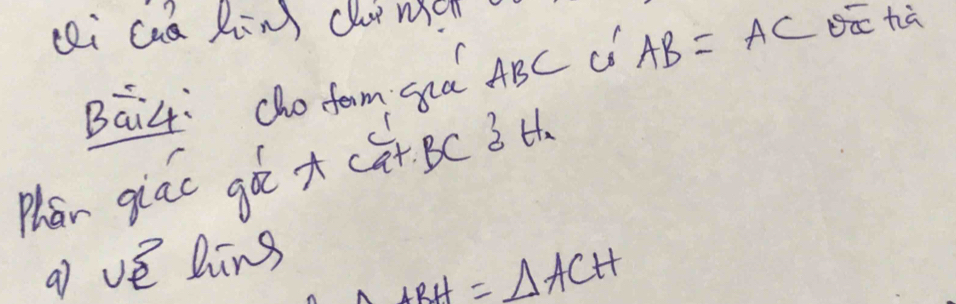 vi của hình chữ nhật
Bài 4: Cho tam giác ABC có AB = AC và tia
Phân giác góc A cắt BC ở H.
a) vẽ hình
Δ ABH = Δ ACH